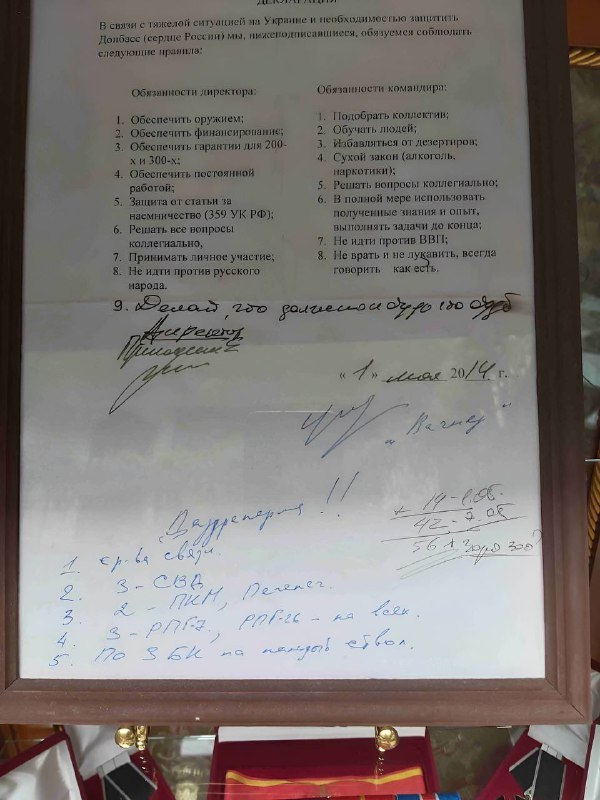 ДЕКЛАРАЦИЯ
В связи с тяжелой ситуацией на Украине и необходимостью защитить
Донбасс (сердце России) мы, нижеподписавшиеся, обязуемся соблюдать
следующие правила:
Обязанности директора:
1. Обеспечить оружием;
2. Обеспечить финансирование;
3. Обеспечить гарантии для 200-
х и 300-х;
4. Обеспечить постоянной
работой;
5. Защита от статьи за
наемничество (359 УК РФ);
6. Решать все вопросы
коллегиально,
7. Принимать личное участие;
8. Не идти против русского
народа.
Обязанности командира:
1. Подобрать коллектив;
2. Обучать людей;
3. Избавляться от дезертиров;
4. Сухой закон (алкоголь,
наркотики);
5. Решать вопросы коллегиально;
6. В полной мере использовать
полученные знания и опыт,
выполнять задачи до конца;
7. Не идти против ВВП;
8. Не врать и не лукавить, всегда
говорить как есть.
9. Делай, что должно и будь что будет
Директор
Пригожин Е
« 1 » мая 2014 г.
"Вагнер"
14-1.05.
42-7.05
1. ср-ва связи.
2. 3-СВД
3. 2-ПКМ, Печенег.
4. 3-РПГ-7, РПГ-26 - на всех.
5. По 3 БК на каждый ствол.